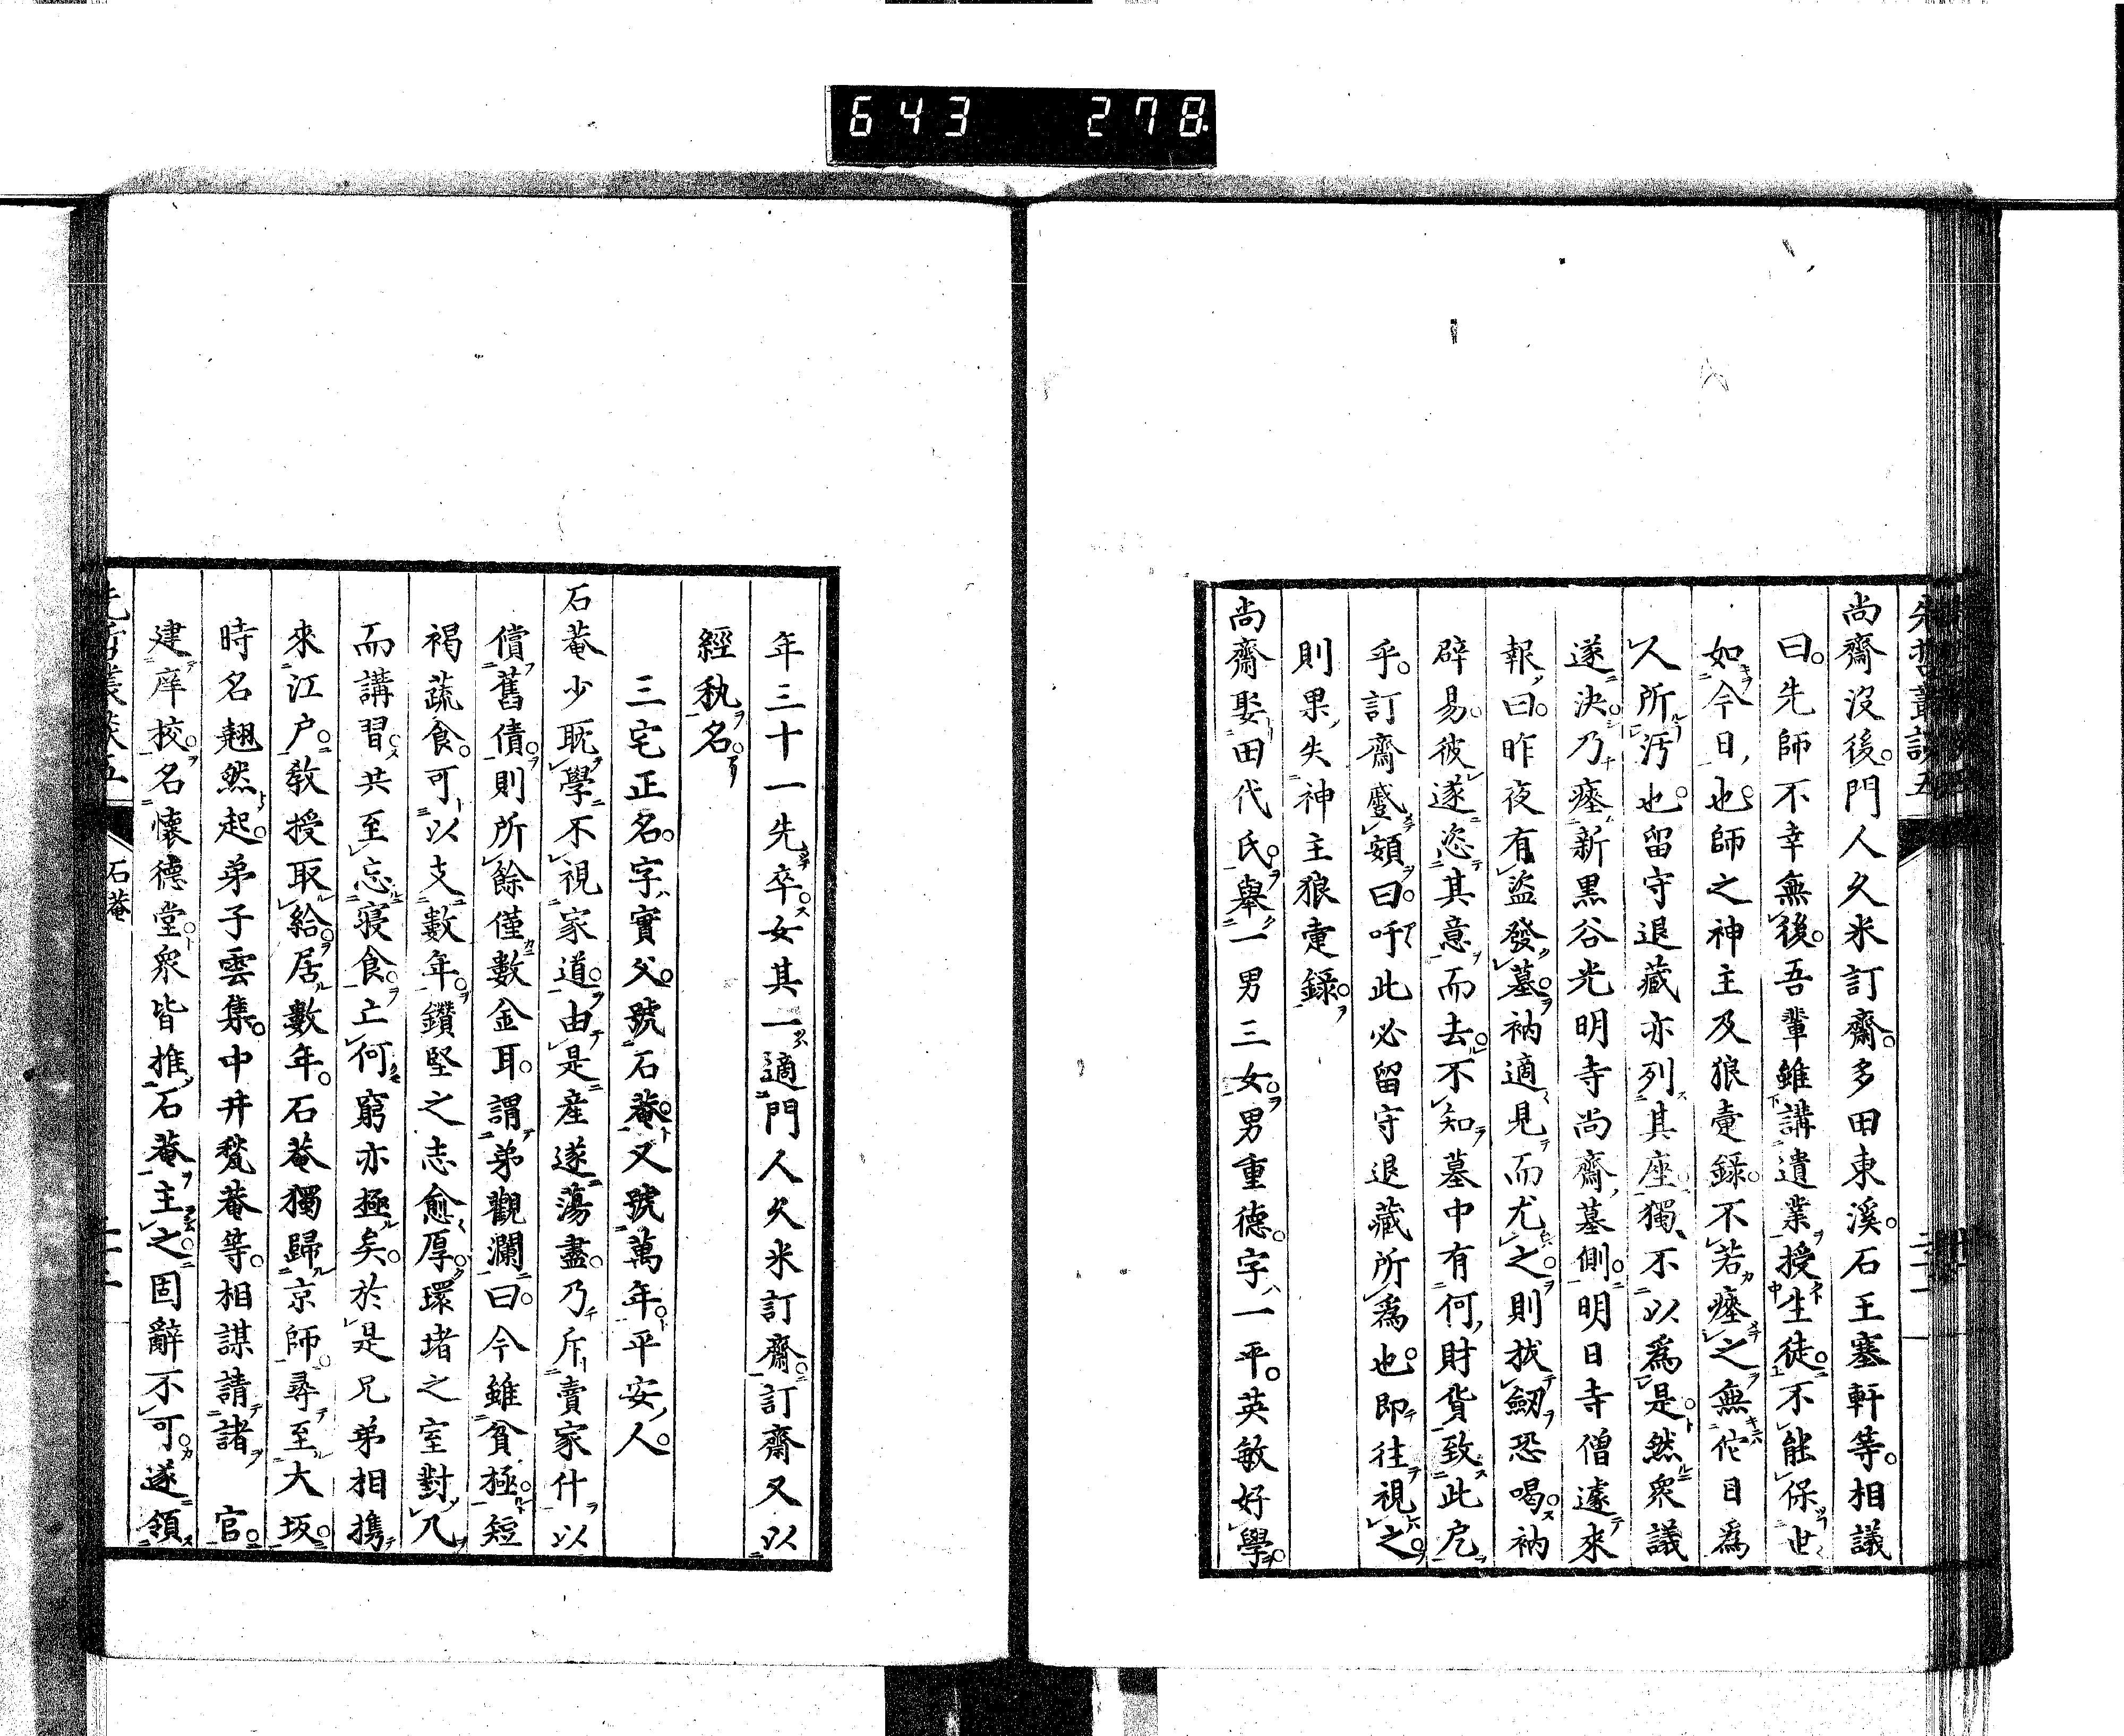 643 278
尚齋沒後。門人久米訂齋。多田東溪。石王塞軒等。相議
曰。先師不幸無後。吾輩雖講遺業授生徒。不能保世
如今日也。師之神主及狼疐錄。不若瘞之無佗日爲
人所汚也。留守退藏亦列其座。獨不以爲是。然衆議
遂決。乃瘞新黑谷光明寺尚齋墓側。明日寺僧遽來
報曰。昨夜有盜發墓。衲適見而尤之。則拔劔恐喝。衲
辟易。彼遂恣其意而去。不知墓中有何財貨致此厄
乎。訂齋蹙頞曰。吁此必留守退藏所爲也。即往視之。
則果失神主狼疐錄。
尚齋娶田代氏。舉一男三女。男重德。字一平。英敏好學。
年三十一先卒。女其一適門人久米訂齋。訂齋又以
經執名。
三宅正名。字實父。號石菴。又號萬年。平安人。
石菴少耽學。不視家道。由是産遂蕩盡。乃斥賣家什以
償舊債。則所餘僅數金耳。謂弟觀瀾曰。今雖貧極。短
褐蔬食。可以支數年。鑽堅之志愈厚。環堵之室對几
而講習。共至忘寢食。亡何窮亦極矣。於是兄弟相携
來江户。教授取給。居數年。石菴獨歸京師。尋至大坂。
時名翹然起。弟子雲集。中井甃菴等。相謀請諸 官。
建庠校。名懷德堂。衆皆推石菴主之。固辭不可。遂領
石菴